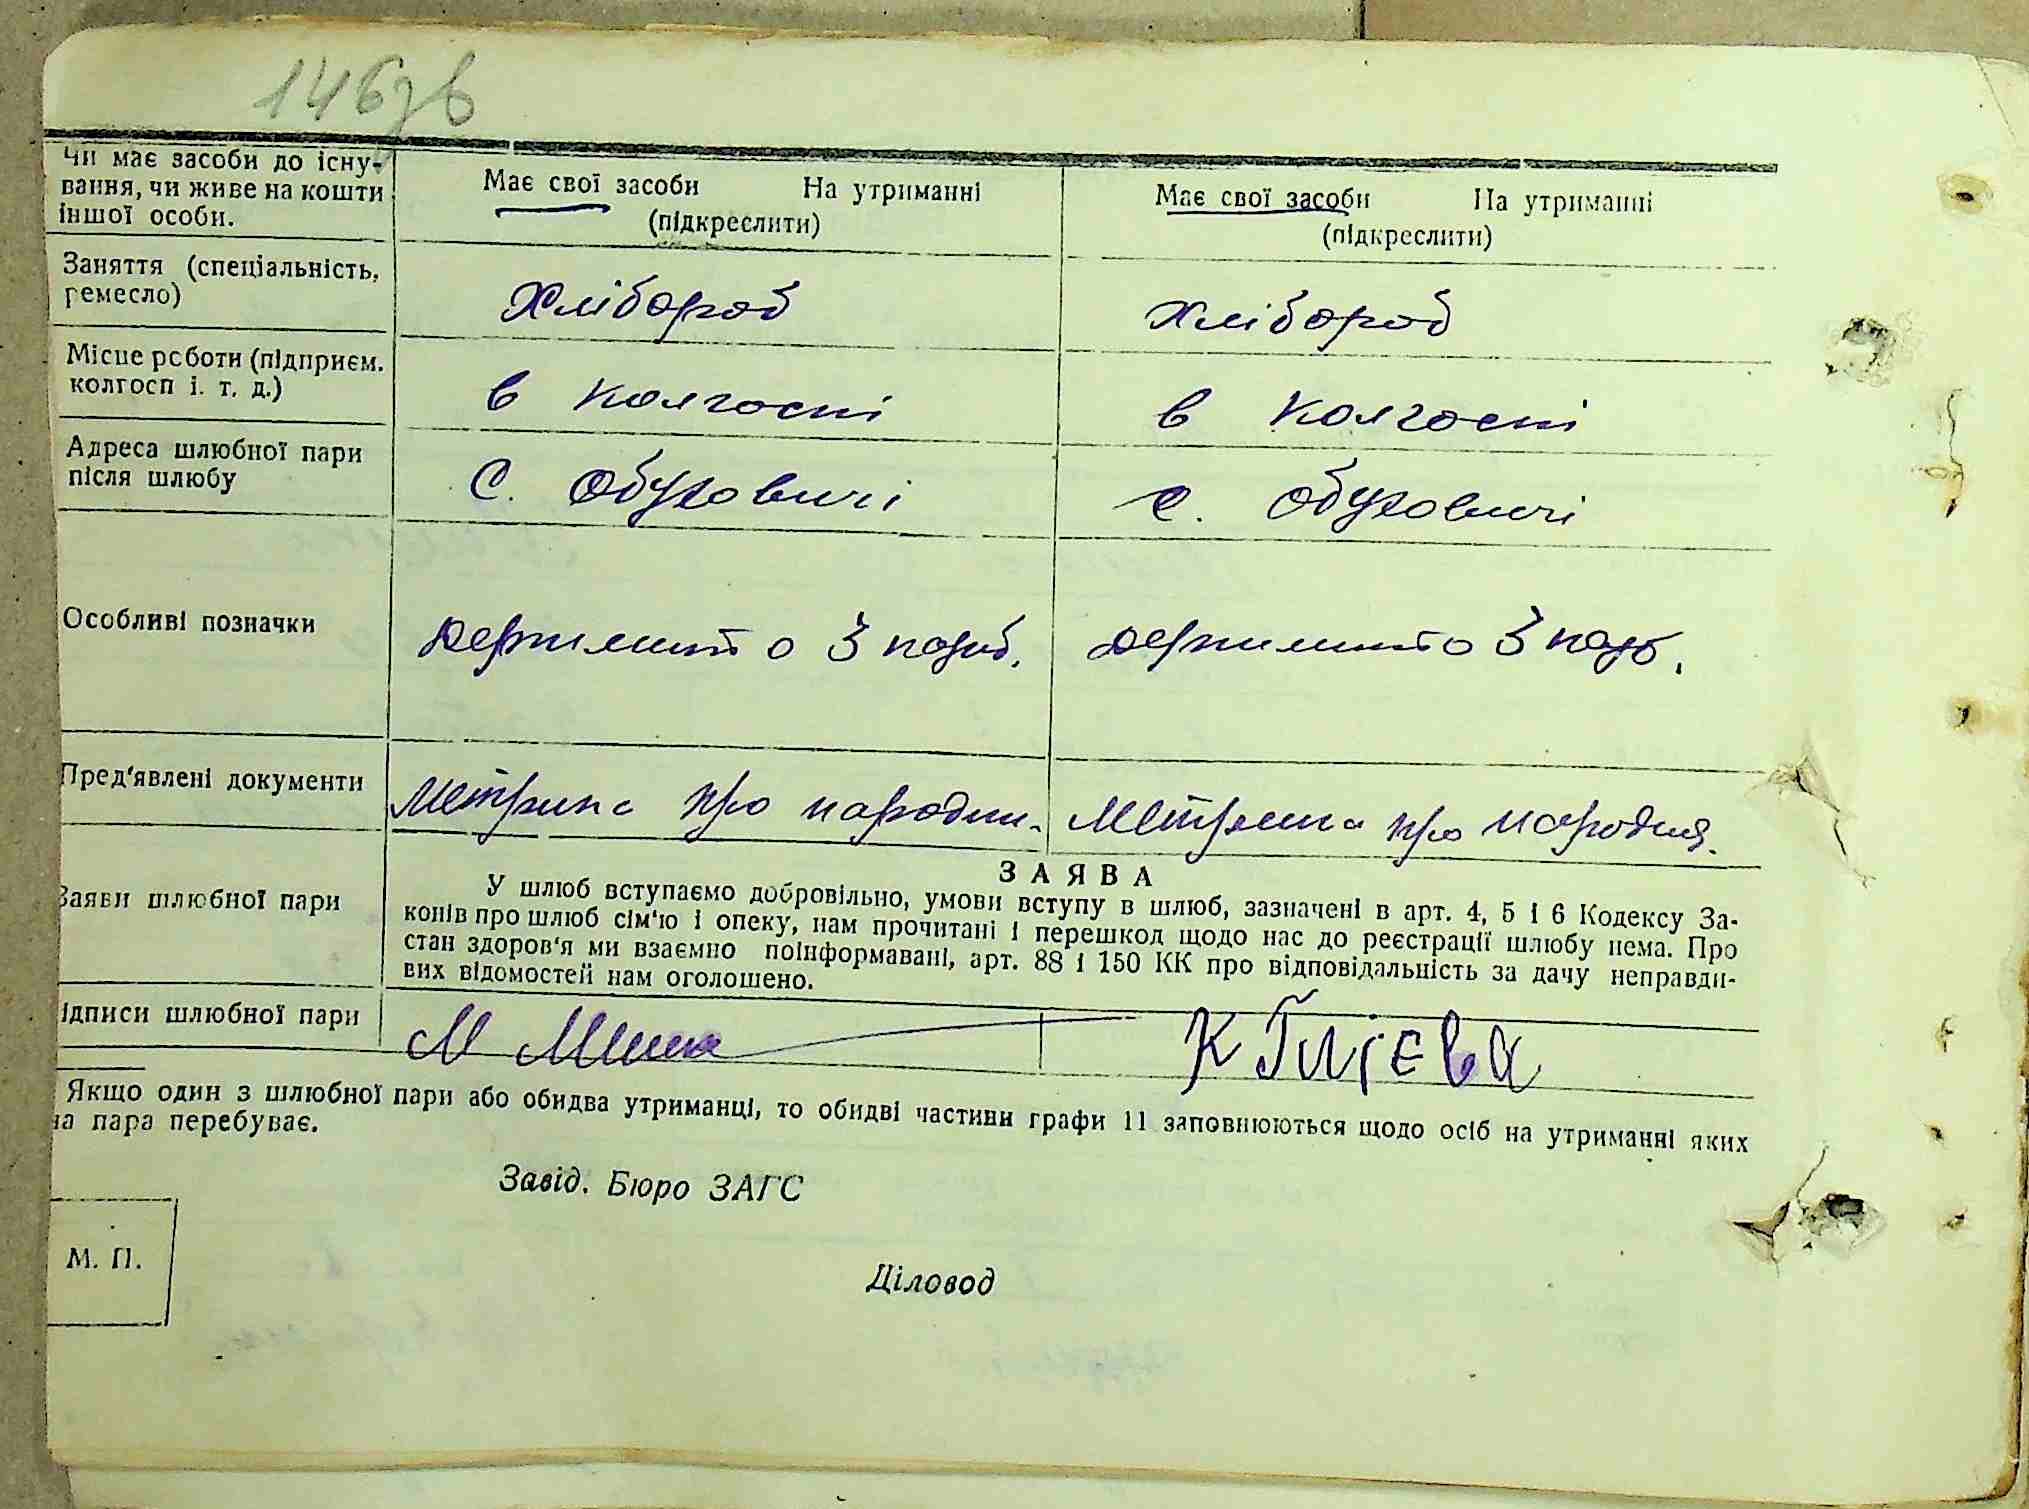 146зв
Чи має засоби до існу-
вання, чи живе на кошти
іншої особи.
Має свої засоби На утриманні
(підкреслити)
Має свої засоби На утриманні
(підкреслити)
Заняття (спеціальність,
ремесло)
Хлібороб
Хлібороб
Місце роботи (підприєм.
колгосп і. т. д.)
в колгоспі
в колгоспі
Адреса шлюбної пари
після шлюбу
С. Обуховичі
с. Обуховичі
Особливі позначки
Держмито 3 карб.
Держмито 3 карб.
Пред'явлені документи
Метрика про народжн.
Метрика про народжн.
Заяви шлюбної пари
ЗАЯВА
У шлюб вступаємо добровільно, умови вступу в шлюб, зазначені в арт. 4, 5 і 6 Кодексу За-
конів про шлюб сім'ю і опеку, нам прочитані і перешкод щодо нас до реєстрації шлюбу нема. Про
стан здоров'я ми взаємно поінформавані, арт. 88 і 150 КК про відповідальність за дачу неправди-
вих відомостей нам оголошено.
ідписи шлюбної пари
М
К
Якщо один з шлюбної пари або обидва утриманці, то обидві частини графи 11 заповнюються щодо осіб на утриманні яких
на пара перебуває.
Завід. Бюро ЗАГС
М. П.
Діловод